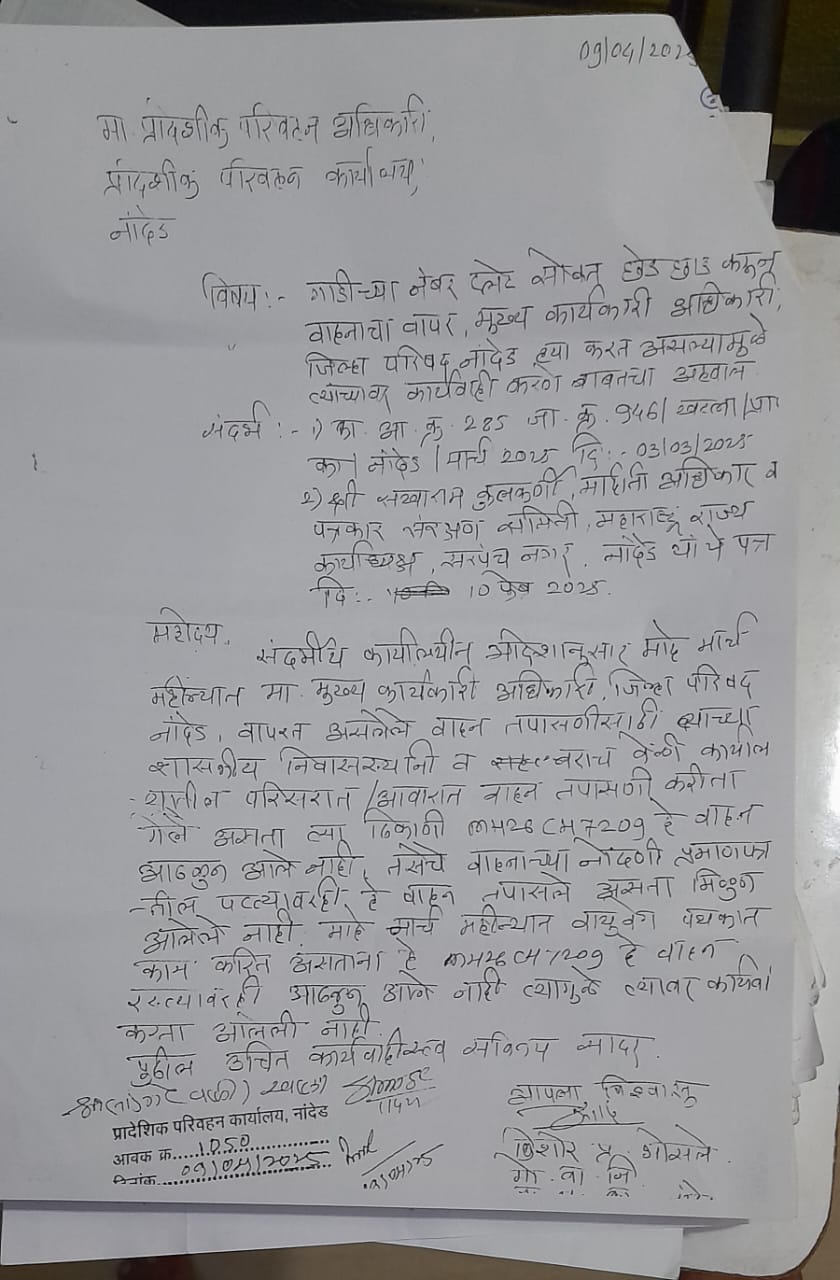 09/04/2025
मा. प्रादेशीक परिवहन अधिकारी,
प्रादेशीक परिवहन कार्यालय,
नांदेड
विषय:- गाडीच्या नंबर प्लेट सोबत छेड छाड करून
वाहनाचा वापर, मुख्य कार्यकारी अधिकारी,
जिल्हा परिषद नांदेड ह्या करत असल्यामुळे
त्यांच्यावर कार्यवाही करणे बाबतचा अहवाल
संदर्भ:- 1) का. आ. क्र. 285 जा. क्र. 946/खटला/प्रा
का/नांदेड/मार्च 2025 दि:- 03/03/2025
2) श्री सखाराम कुलकर्णी, माहिती अधिकार व
पत्रकार संरक्षण समिती, महाराष्ट्र राज्य
कार्याध्यक्ष, सरपंच नगर, नांदेड यांचे पत्र
दि:- 10 फेब 2025.
महोदय,
संदर्भीय कार्यालयीन आदेशानुसार माहे मार्च
महीन्यात मा. मुख्य कार्यकारी अधिकारी, जिल्हा परिषद
नांदेड, वापरत असलेले वाहन तपासणीसाठी त्याच्या
शासकीय निवासस्थानी व बराच वेळी कार्याल
-यातील परिसरात/आवारात वाहन तपासणी करीता
गेले असता त्या ठिकाणी MH26CM7209 हे वाहन
आढळुन आले नाही, तसेच वाहनाच्या नोंदणी प्रमाणपत्रा
-तील पत्त्यावरही हे वाहन तपासले असता मिळुन
आलेले नाही. माहे मार्च महीन्यात वायुवेग पथकात
काम करित असताना हे MH26CM7209 हे वाहन
रस्त्यावरही आढळुन आले नाही त्यामुळे त्यावर कार्यवा
करता आलेली नाही.
पुढील उचित कार्यवाहीस्तव सविनय सादर.
आपला विश्वासु
प्रादेशिक परिवहन कार्यालय, नांदेड
आवक क्र. 1050
दिनांक 09/04/2025
किशोर प्र. भोसले
मो. वा. नि